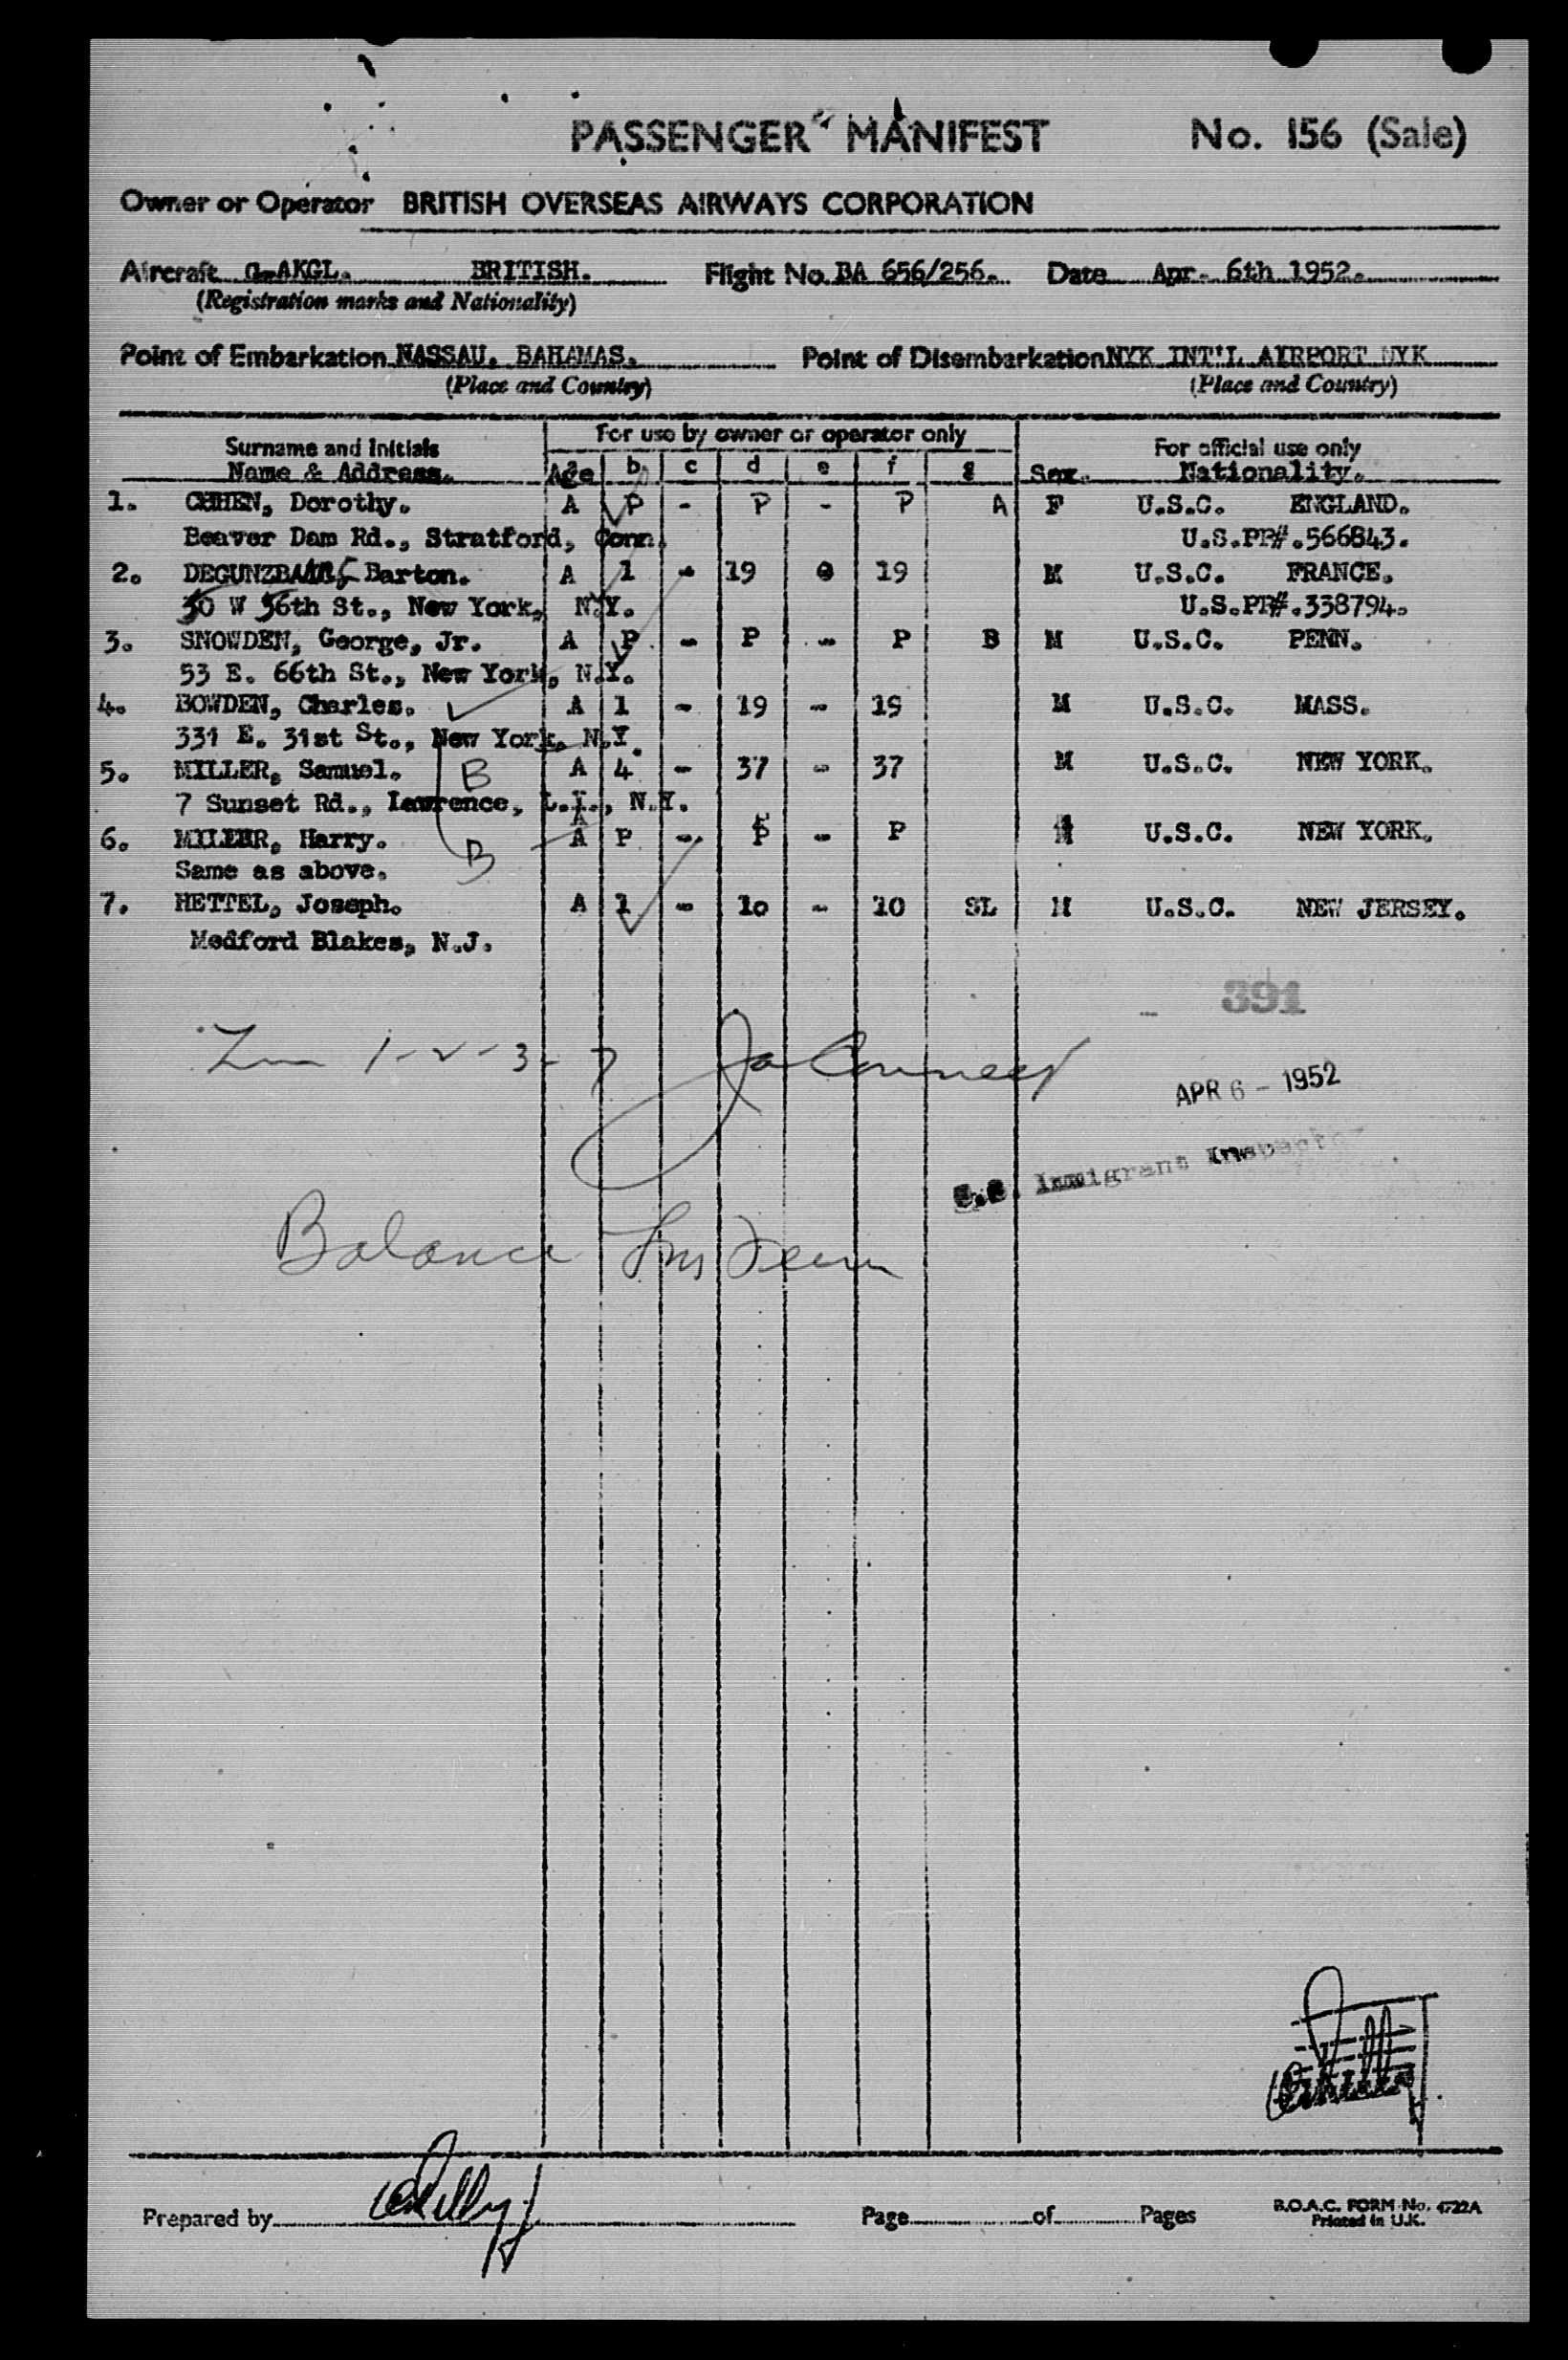 PASSENGER MANIFEST No. 156 (Sale)
Owner or Operator BRITISH OVERSEAS AIRWAYS CORPORATION
Aircraft G.AKGL. BRITISH. Flight No. BA 656/256. Date Apr. 6th 1952.
(Registration marks and Nationality)
Point of Embarkation NASSAU, BAHAMAS. Point of Disembarkation NYK INT'L AIRPORT NYK
(Place and Country) (Place and Country)
Surname and Initials For use by owner or operator only For official use only
Name & Address. Age b c d e f g Sex. Nationality.
1. Dorothy. A P - P - P A F U.S.C. ENGLAND.
Beaver Dam Rd., Stratford, Conn. U.S.PP#.566843.
2. Barton. A 1 - 19 - 19 M U.S.C. FRANCE.
30 W 56th St., New York, N.Y. U.S.PP#.338794.
3. SNOWDEN, George, Jr. A P - P - P B M U.S.C. PENN.
53 E. 66th St., New York, N.Y.
4. BOWDEN, Charles. A 1 - 19 - 19 M U.S.C. MASS.
331 E. 31st St., New York, N.Y.
5. MILLER, Samuel. B A 4 - 37 - 37 M U.S.C. NEW YORK.
7 Sunset Rd., Lawrence, L.I., N.Y.
6. MILLER, Harry. B A P - P - P M U.S.C. NEW YORK.
Same as above.
7. HETTEL, Joseph. A 1 - 10 - 10 SL M U.S.C. NEW JERSEY.
Medford Blakes, N.J.
391
1-2-3-7
APR 6 - 1952
U.S. Immigrant Inspector
Balance
Prepared by Page of Pages B.O.A.C. FORM No. 4722A
Printed in U.K.